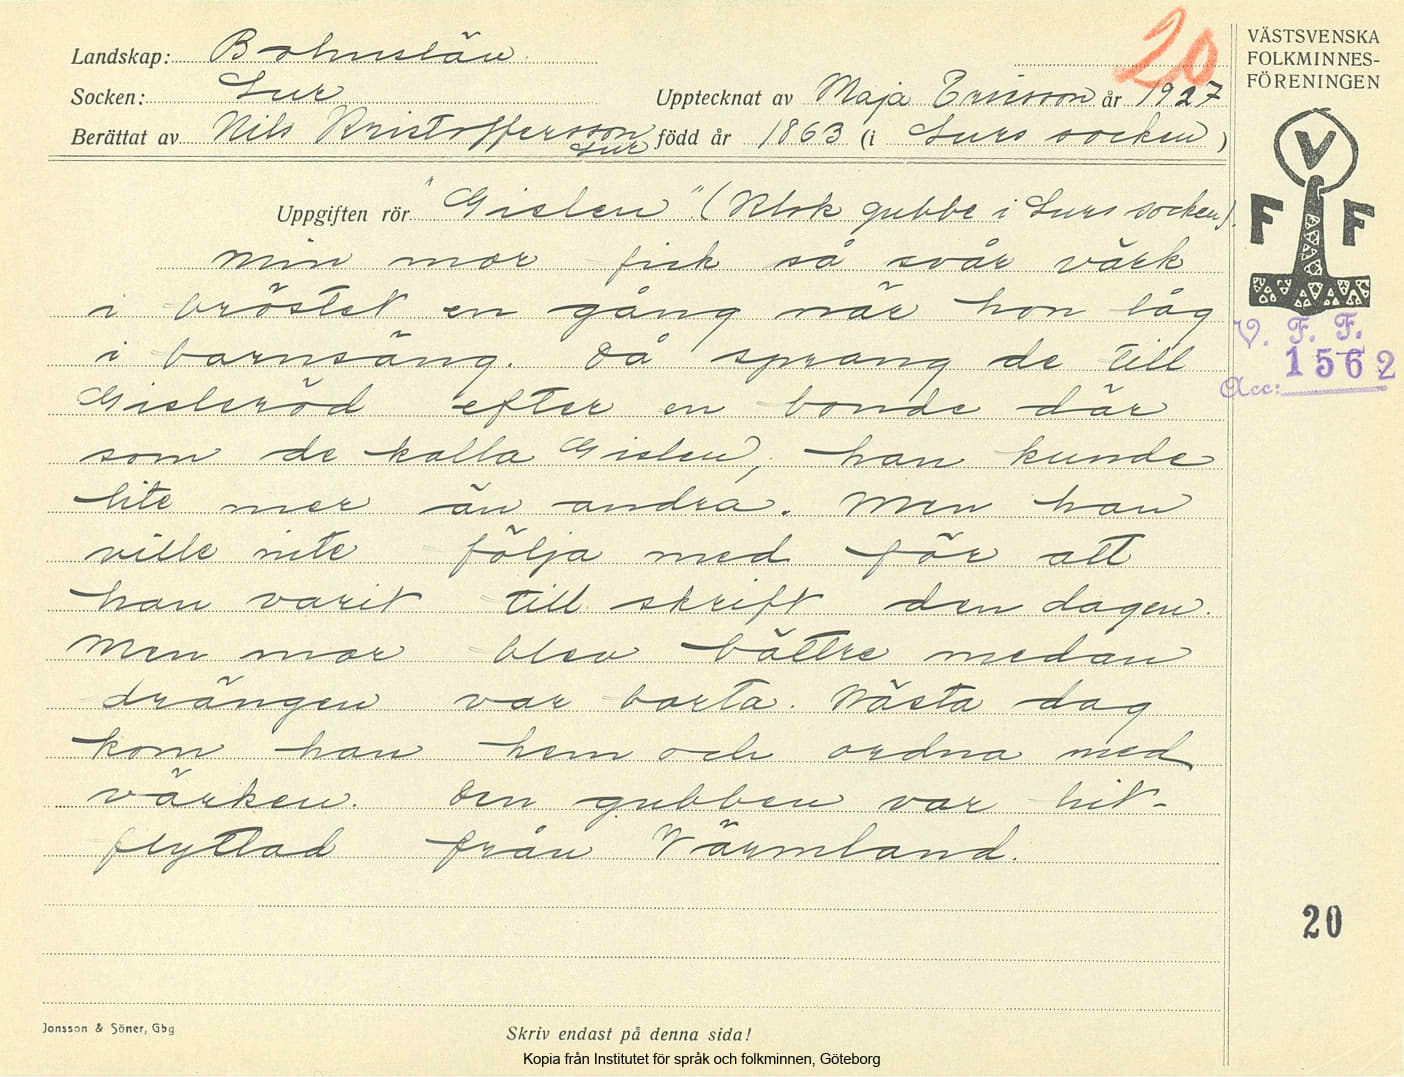 20
VÄSTSVENSKA
FOLKMINNES-
FÖRENINGEN
Landskap: Bohuslän
Socken: Lur
Upptecknat av Maja Ericsson år 1927
Berättat av Nils Kristoffersson född år 1863 (i Lurs socken)
Lur
Uppgiften rör "Gislen". (Klok gubbe i Lurs socken).
V
F F
min mor fick så svår värk
i bröstet en gång när hon låg
i barnsäng. Då sprang de till
Gisleröd efter en bonde där
som de kalla Gislen, han kunde
lite mer än andra. Men han
ville inte följa med för att
han varit till skrift den dagen.
Men mor blev bättre medan
drängen var borta. Nästa dag
kom han hem och ordna med
värken. Den gubben var hit-
flyttad från Värmland.
V. F. F.
1562
Acc:
20
Jonsson & Söner, Gbg
Skriv endast på denna sida!
Kopia från Institutet för språk och folkminnen, Göteborg